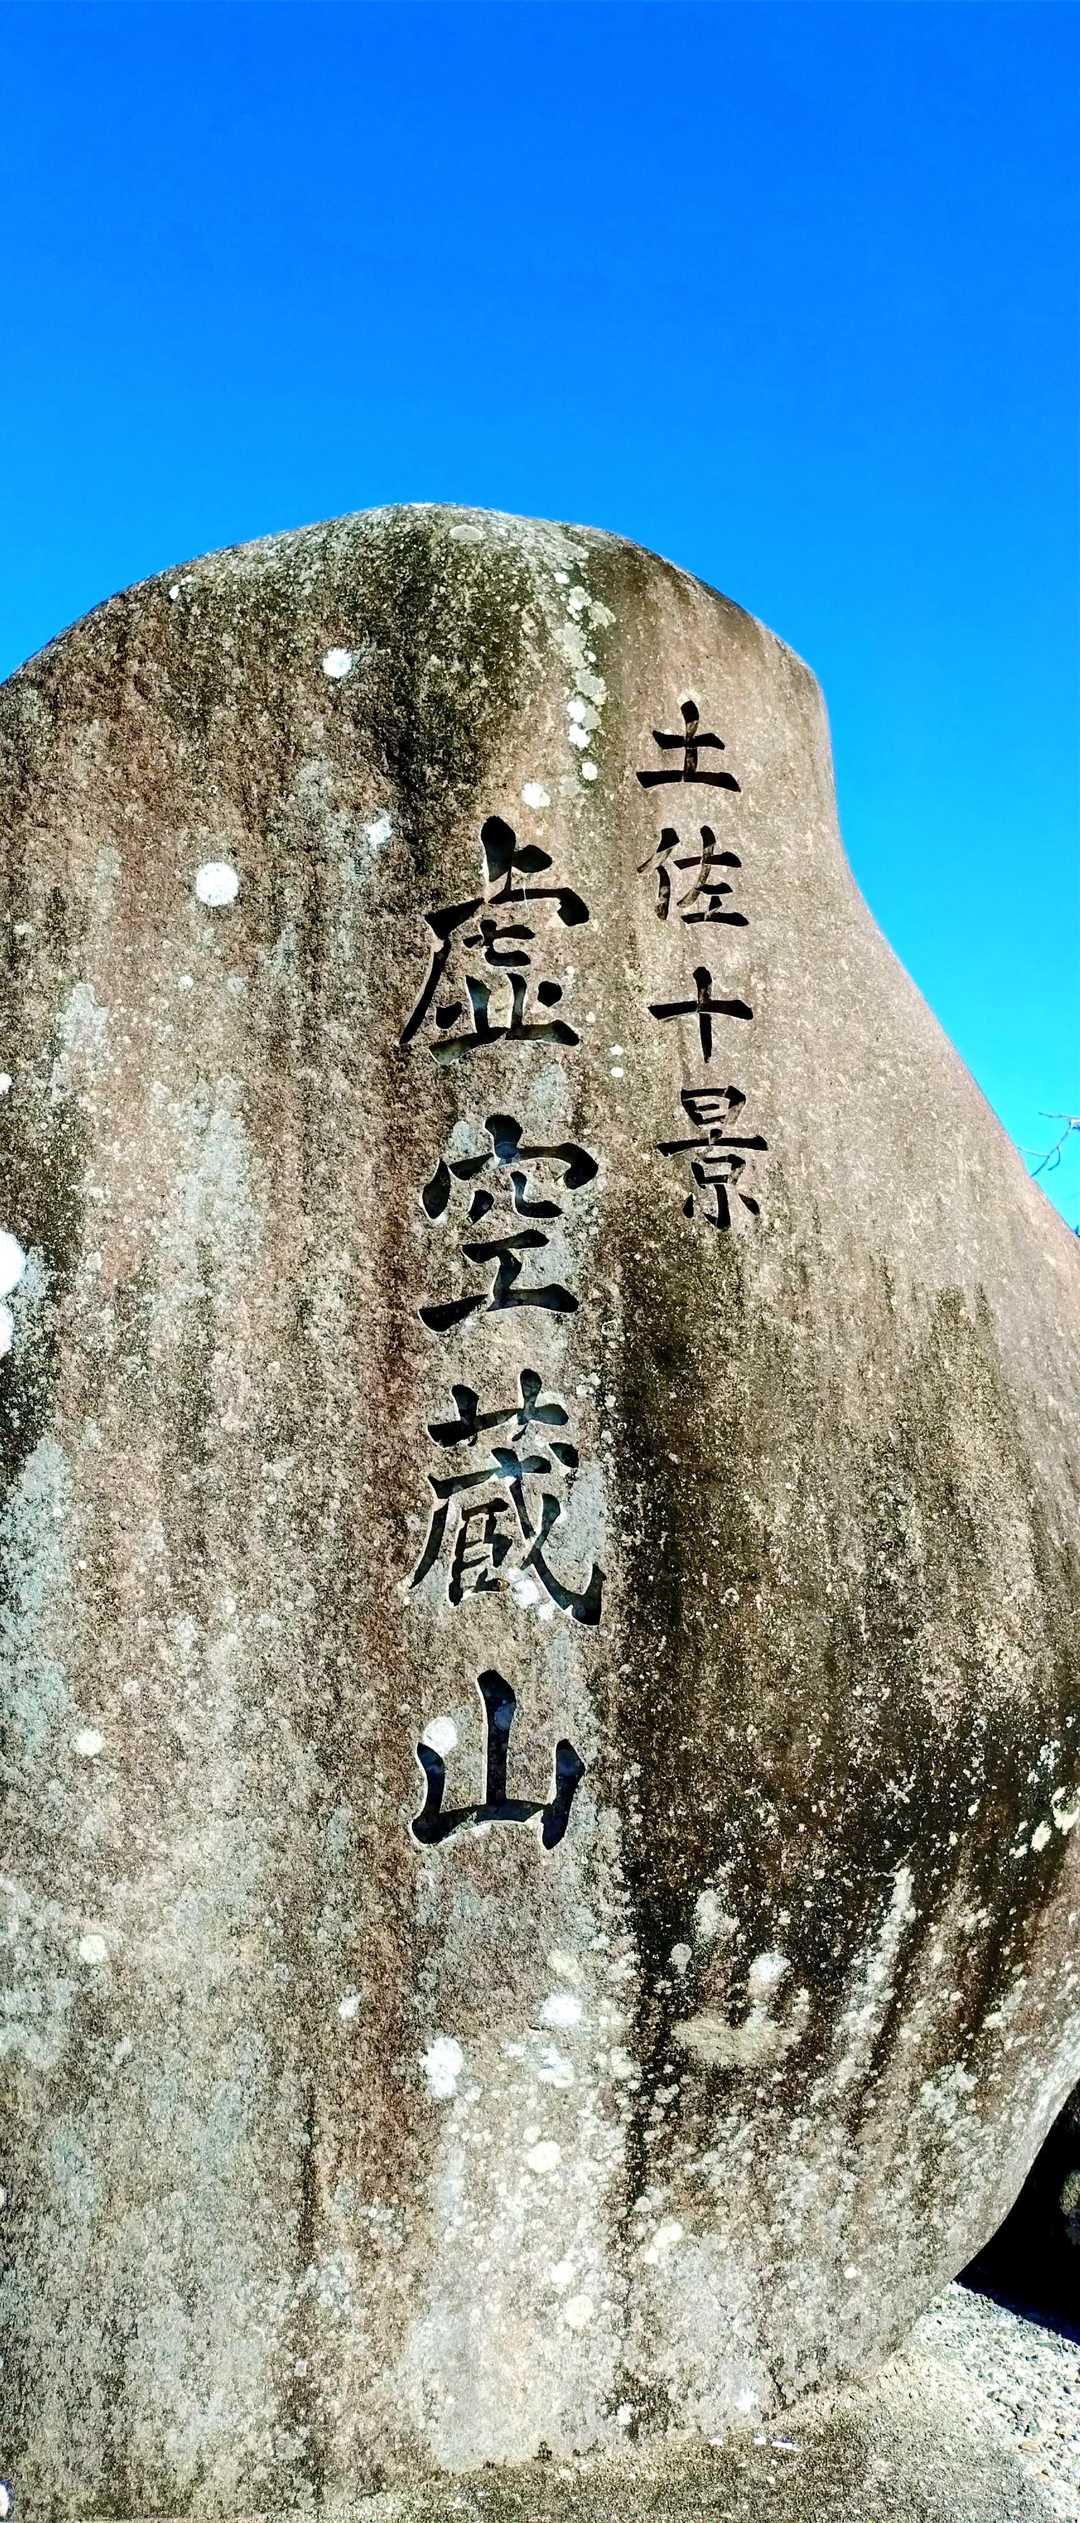 土佐十景
虚空蔵山